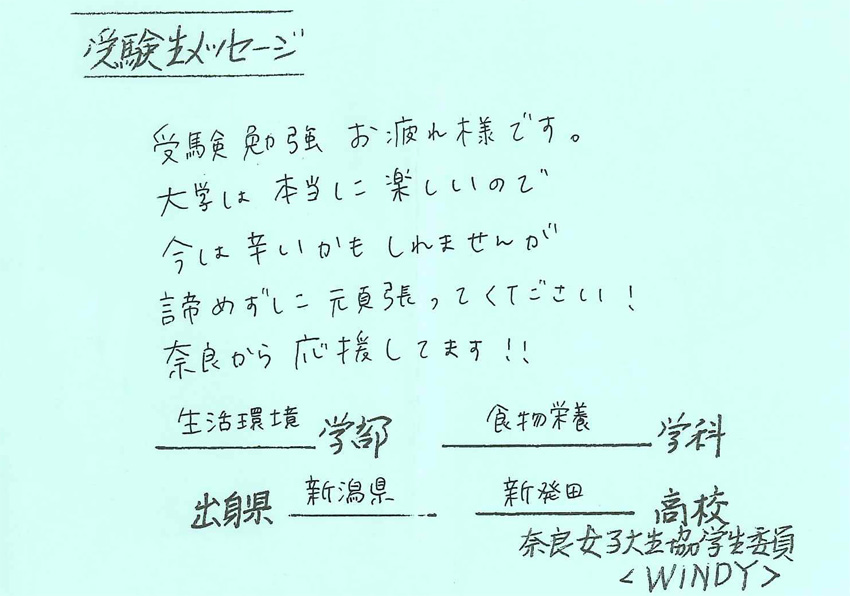 受験生メッセージ
受験勉強 お疲れ様です。
大学は 本当に 楽しいので
今は 辛いかも しれませんが
諦めずに 頑張ってください！
奈良から 応援してます!!
生活環境 学部 食物栄養 学科
出身県 新潟県 新発田 高校
奈良女子大生協学生委員
<WINDY>